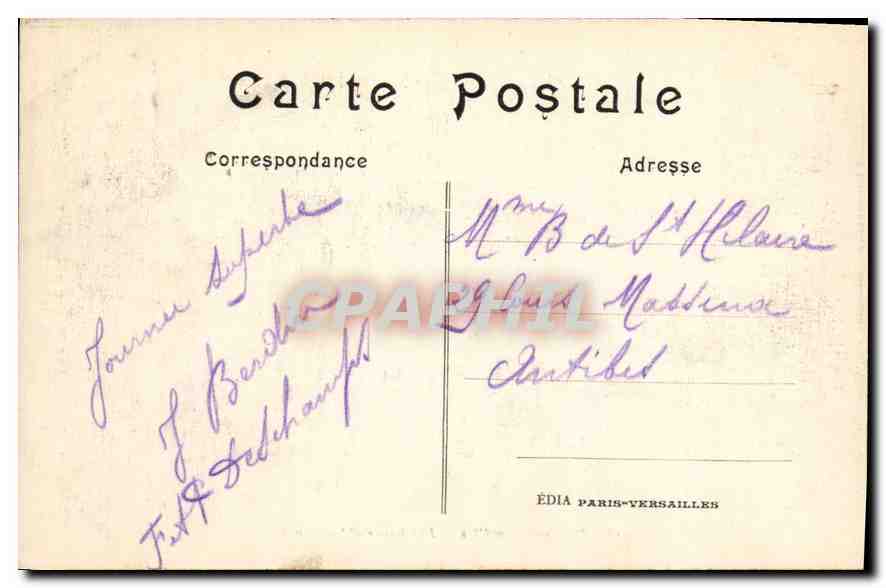 Carte Postale
Correspondance
Adresse
Journée superbe
J
F et G Deschamps
Mme B de St Hilaire
Massena
Antibes
ÉDIA PARIS-VERSAILLES
CPAPHIL